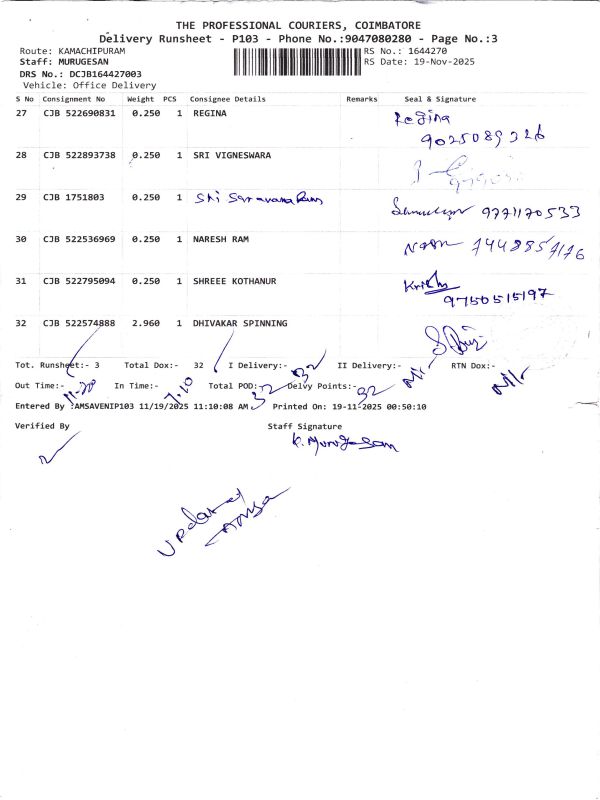 THE PROFESSIONAL COURIERS, COIMBATORE
Delivery Runsheet - P103 - Phone No.:9047080280 - Page No.:3
Route: KAMACHIPURAM RS No.: 1644270
Staff: MURUGESAN RS Date: 19-Nov-2025
DRS No.: DCJB164427003
Vehicle: Office Delivery
S No Consignment No Weight PCS Consignee Details Remarks Seal & Signature
27 CJB 522690831 0.250 1 REGINA Regina
9025089326
28 CJB 522893738 0.250 1 SRI VIGNESWARA
29 CJB 1751803 0.250 1 Sri Saravana 9771170533
30 CJB 522536969 0.250 1 NARESH RAM
31 CJB 522795094 0.250 1 SHREEE KOTHANUR
9750515197
32 CJB 522574888 2.960 1 DHIVAKAR SPINNING
Tot. Runsheet:- 3 Total Dox:- 32 I Delivery:- 32 II Delivery:- Nil RTN Dox:- Nil
Out Time:- 11.20 In Time:- 7.10 Total POD:- 32 Delvy Points:- 32
Entered By :AMSAVENIP103 11/19/2025 11:10:08 AM Printed On: 19-11-2025 00:50:10
Verified By Staff Signature
K. Murugesan